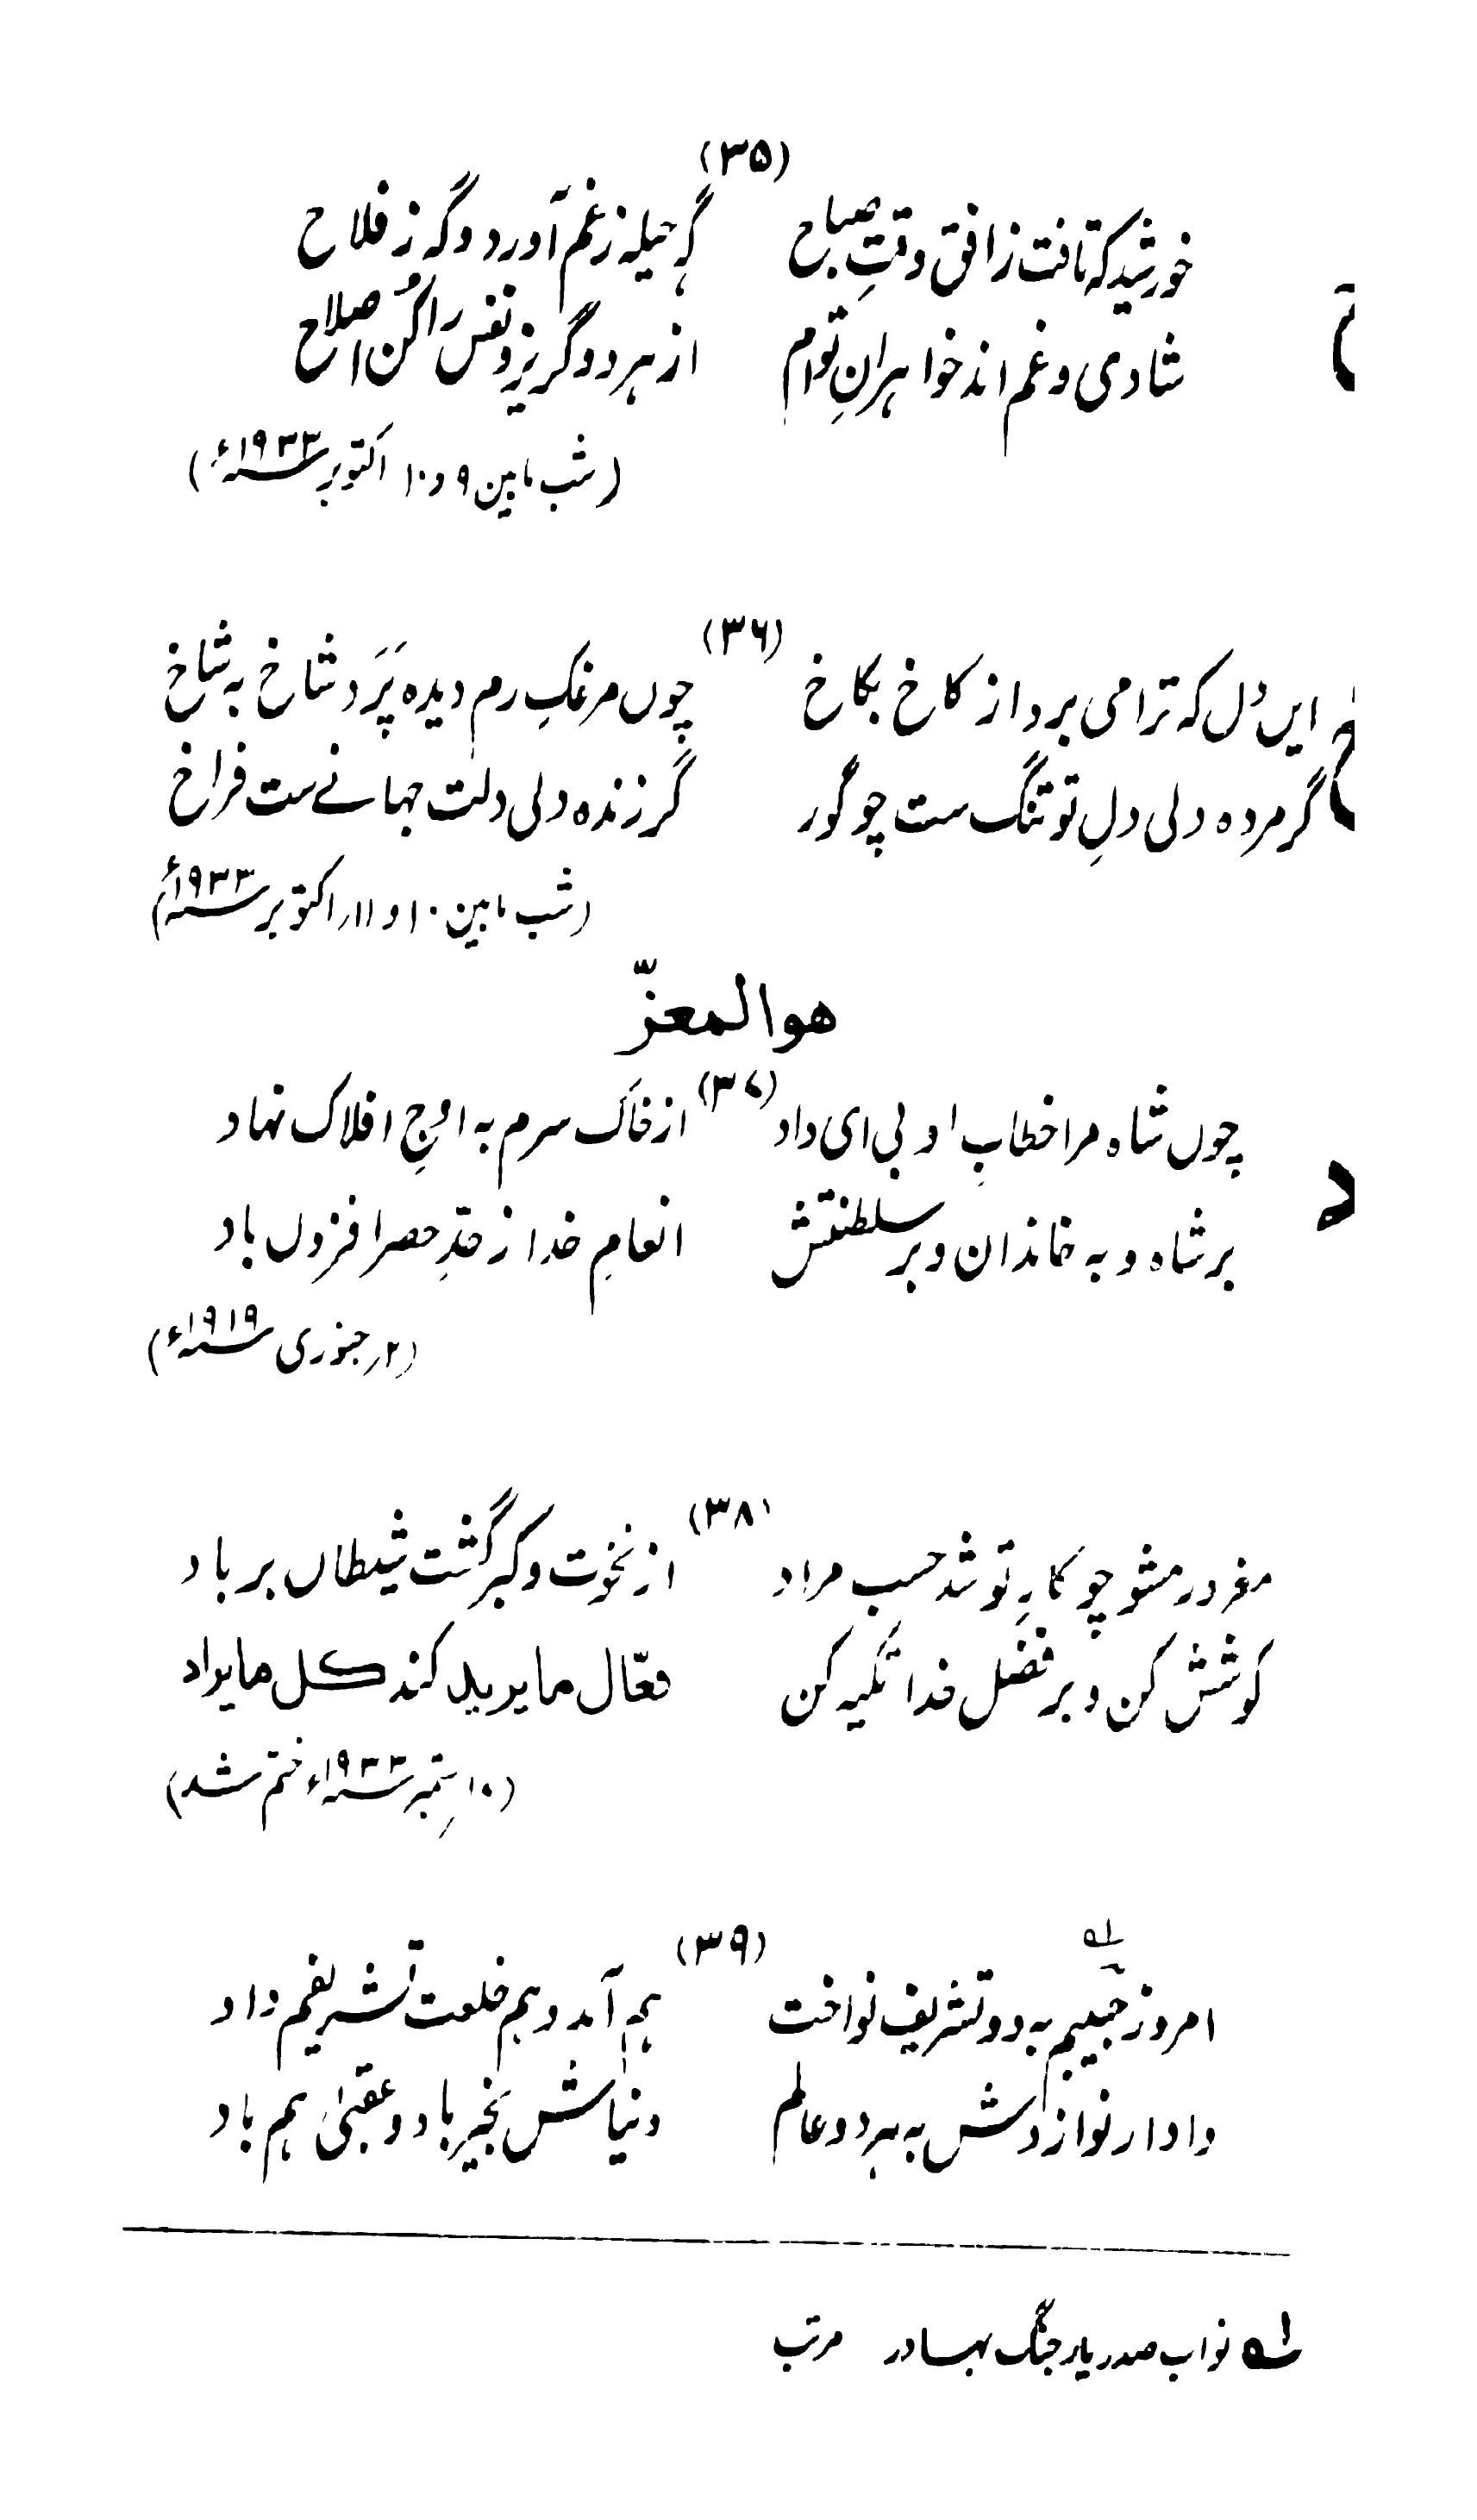 (۳۵)
خورشید کہ تافت ز افق وقتِ صباح گہ حیلہ ز غم آورد و گہ ز فلاح
شادی و غم اند خواہرانِ توام از ہر دو گریز و نفس را کن اصلاح
(شب مابین ۹ و ۱۰ اکتوبر ۱۹۳۳ء)
(۳۶)
ایں دل کہ ترا می برد از کاخ بکاخ چوں مرغکِ رم دیدہ پَرَد شاخ بہ شاخ
گر مردہ دلی دلِ تو تنگ ست چو گور گر زندہ دلی دلت جہانے ست فراخ
(شب مابین ۱۰ و ۱۱ اکتوبر ۱۹۳۳ء)
ھوالمعزّ
(۳۷)
چوں شاہ مرا خطابِ او بی ای داد از خاک سرم بہ اوجِ افلاک نہاد
بر شاہ و بہ خاندان و بر سلطنتش انعامِ خدا از حدِ حصر افزوں باد
(۲ر جنوری ۱۹۱۹ء)
(۳۸)
مغرور مشو چو کارِ تو شد حسب مراد از نخوت و کبر گشت شیطاں برباد
کوشش کن و بر فضل خدا تکیہ کن فعّال ما یرید کند کل ما یراد
(۱۰ ستمبر ۱۹۳۳ء ختم شد)
(۳۹)
امروز حبیبم بہ دو تشریف نواخت ہم آمد و ہم خلعت تشریفم داد
دادار نوازدش بہ ہر دو عالم دنیاش بخیر باد و عقبیٰ ہم باد
لہ نواب صدر یار جنگ بہادر مرتب